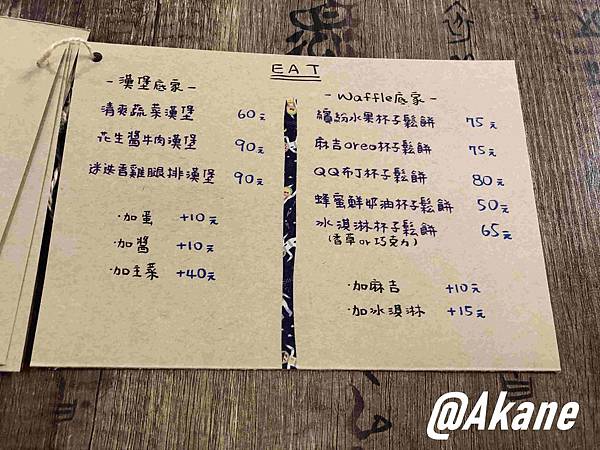 EAT
- 漢堡底家 -
清爽蔬菜漢堡 60元
花生醬牛肉漢堡 90元
迷迭香雞腿排漢堡 90元
·加蛋 +10元
·加醬 +10元
·加主菜 +40元
- Waffle底家 -
繽紛水果杯子鬆餅 75元
麻吉oreo杯子鬆餅 75元
QQ布丁杯子鬆餅 80元
蜂蜜鮮奶油杯子鬆餅 50元
冰淇淋杯子鬆餅 65元
(香草or巧克力)
·加麻吉 +10元
·加冰淇淋 +15元
@Akane